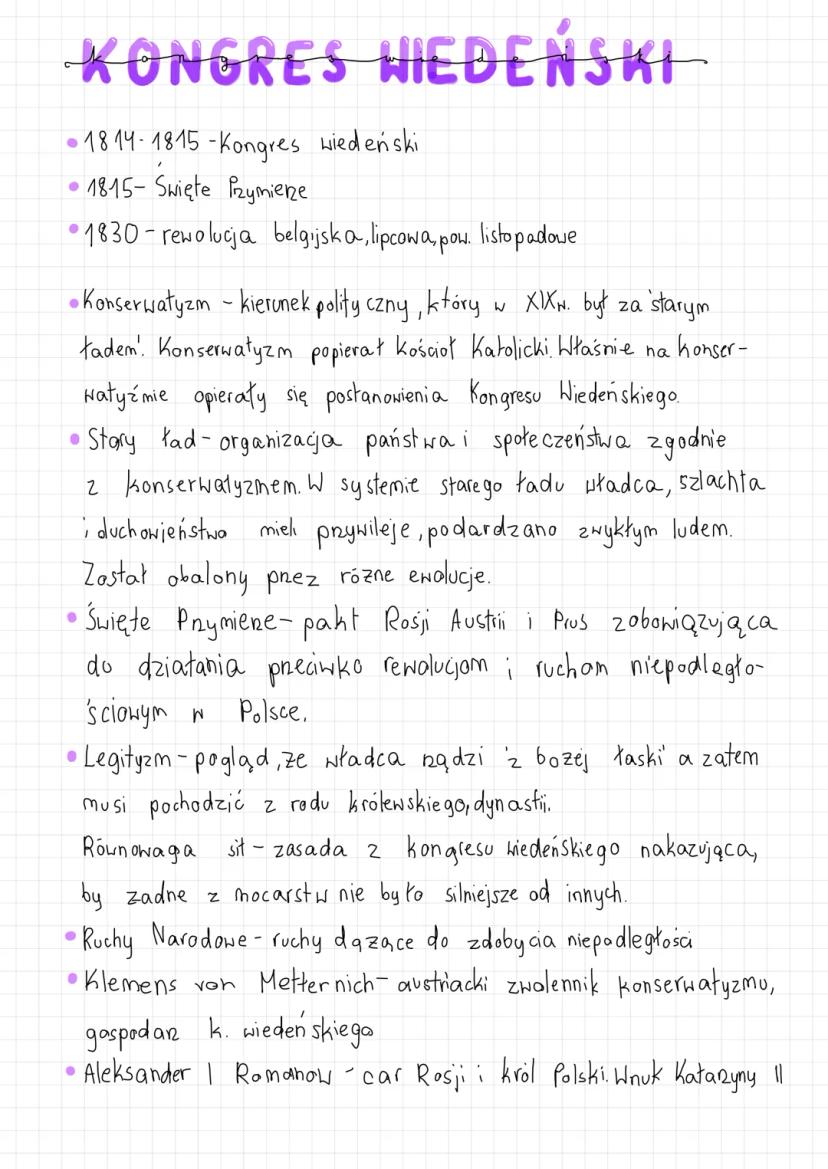 KONGRES WIEDEŃSKI
kongres wiedeński
• 1814-1815 - Kongres wiedeński
• 1815 - Święte Przymierze
• 1830 - rewolucja belgijska, lipcowa, pow. listopadowe
• Konserwatyzm - kierunek polityczny, który w XIXw. był za 'starym
ładem'. Konserwatyzm popierał Kościoł Katolicki. Właśnie na konser-
watyźmie opierały się postanowienia Kongresu Wiedeńskiego.
• Stary ład - organizacja państwa i społeczeństwa zgodnie
z konserwatyzmem. W systemie starego ładu władca, szlachta
i duchowieństwo mieli przywileje, podardzano zwykłym ludem.
Został obalony przez różne ewolucje.
• Święte Przymierze - pakt Rosji Austrii i Prus zobowiązująca
do działania przeciwko rewolucjom i ruchom niepodległo-
ściowym w Polsce.
• Legityzm - pogląd, że władca rządzi 'z bożej łaski' a zatem
musi pochodzić z rodu królewskiego, dynastii.
Równowaga sił - zasada z kongresu wiedeńskiego nakazująca,
by żadne z mocarstw nie było silniejsze od innych.
• Ruchy Narodowe - ruchy dążące do zdobycia niepodległości
• Klemens von Metternich - austriacki zwolennik konserwatyzmu,
gospodarz k. wiedeńskiego
• Aleksander I Romanow - car Rosji i król Polski. Wnuk Katarzyny II